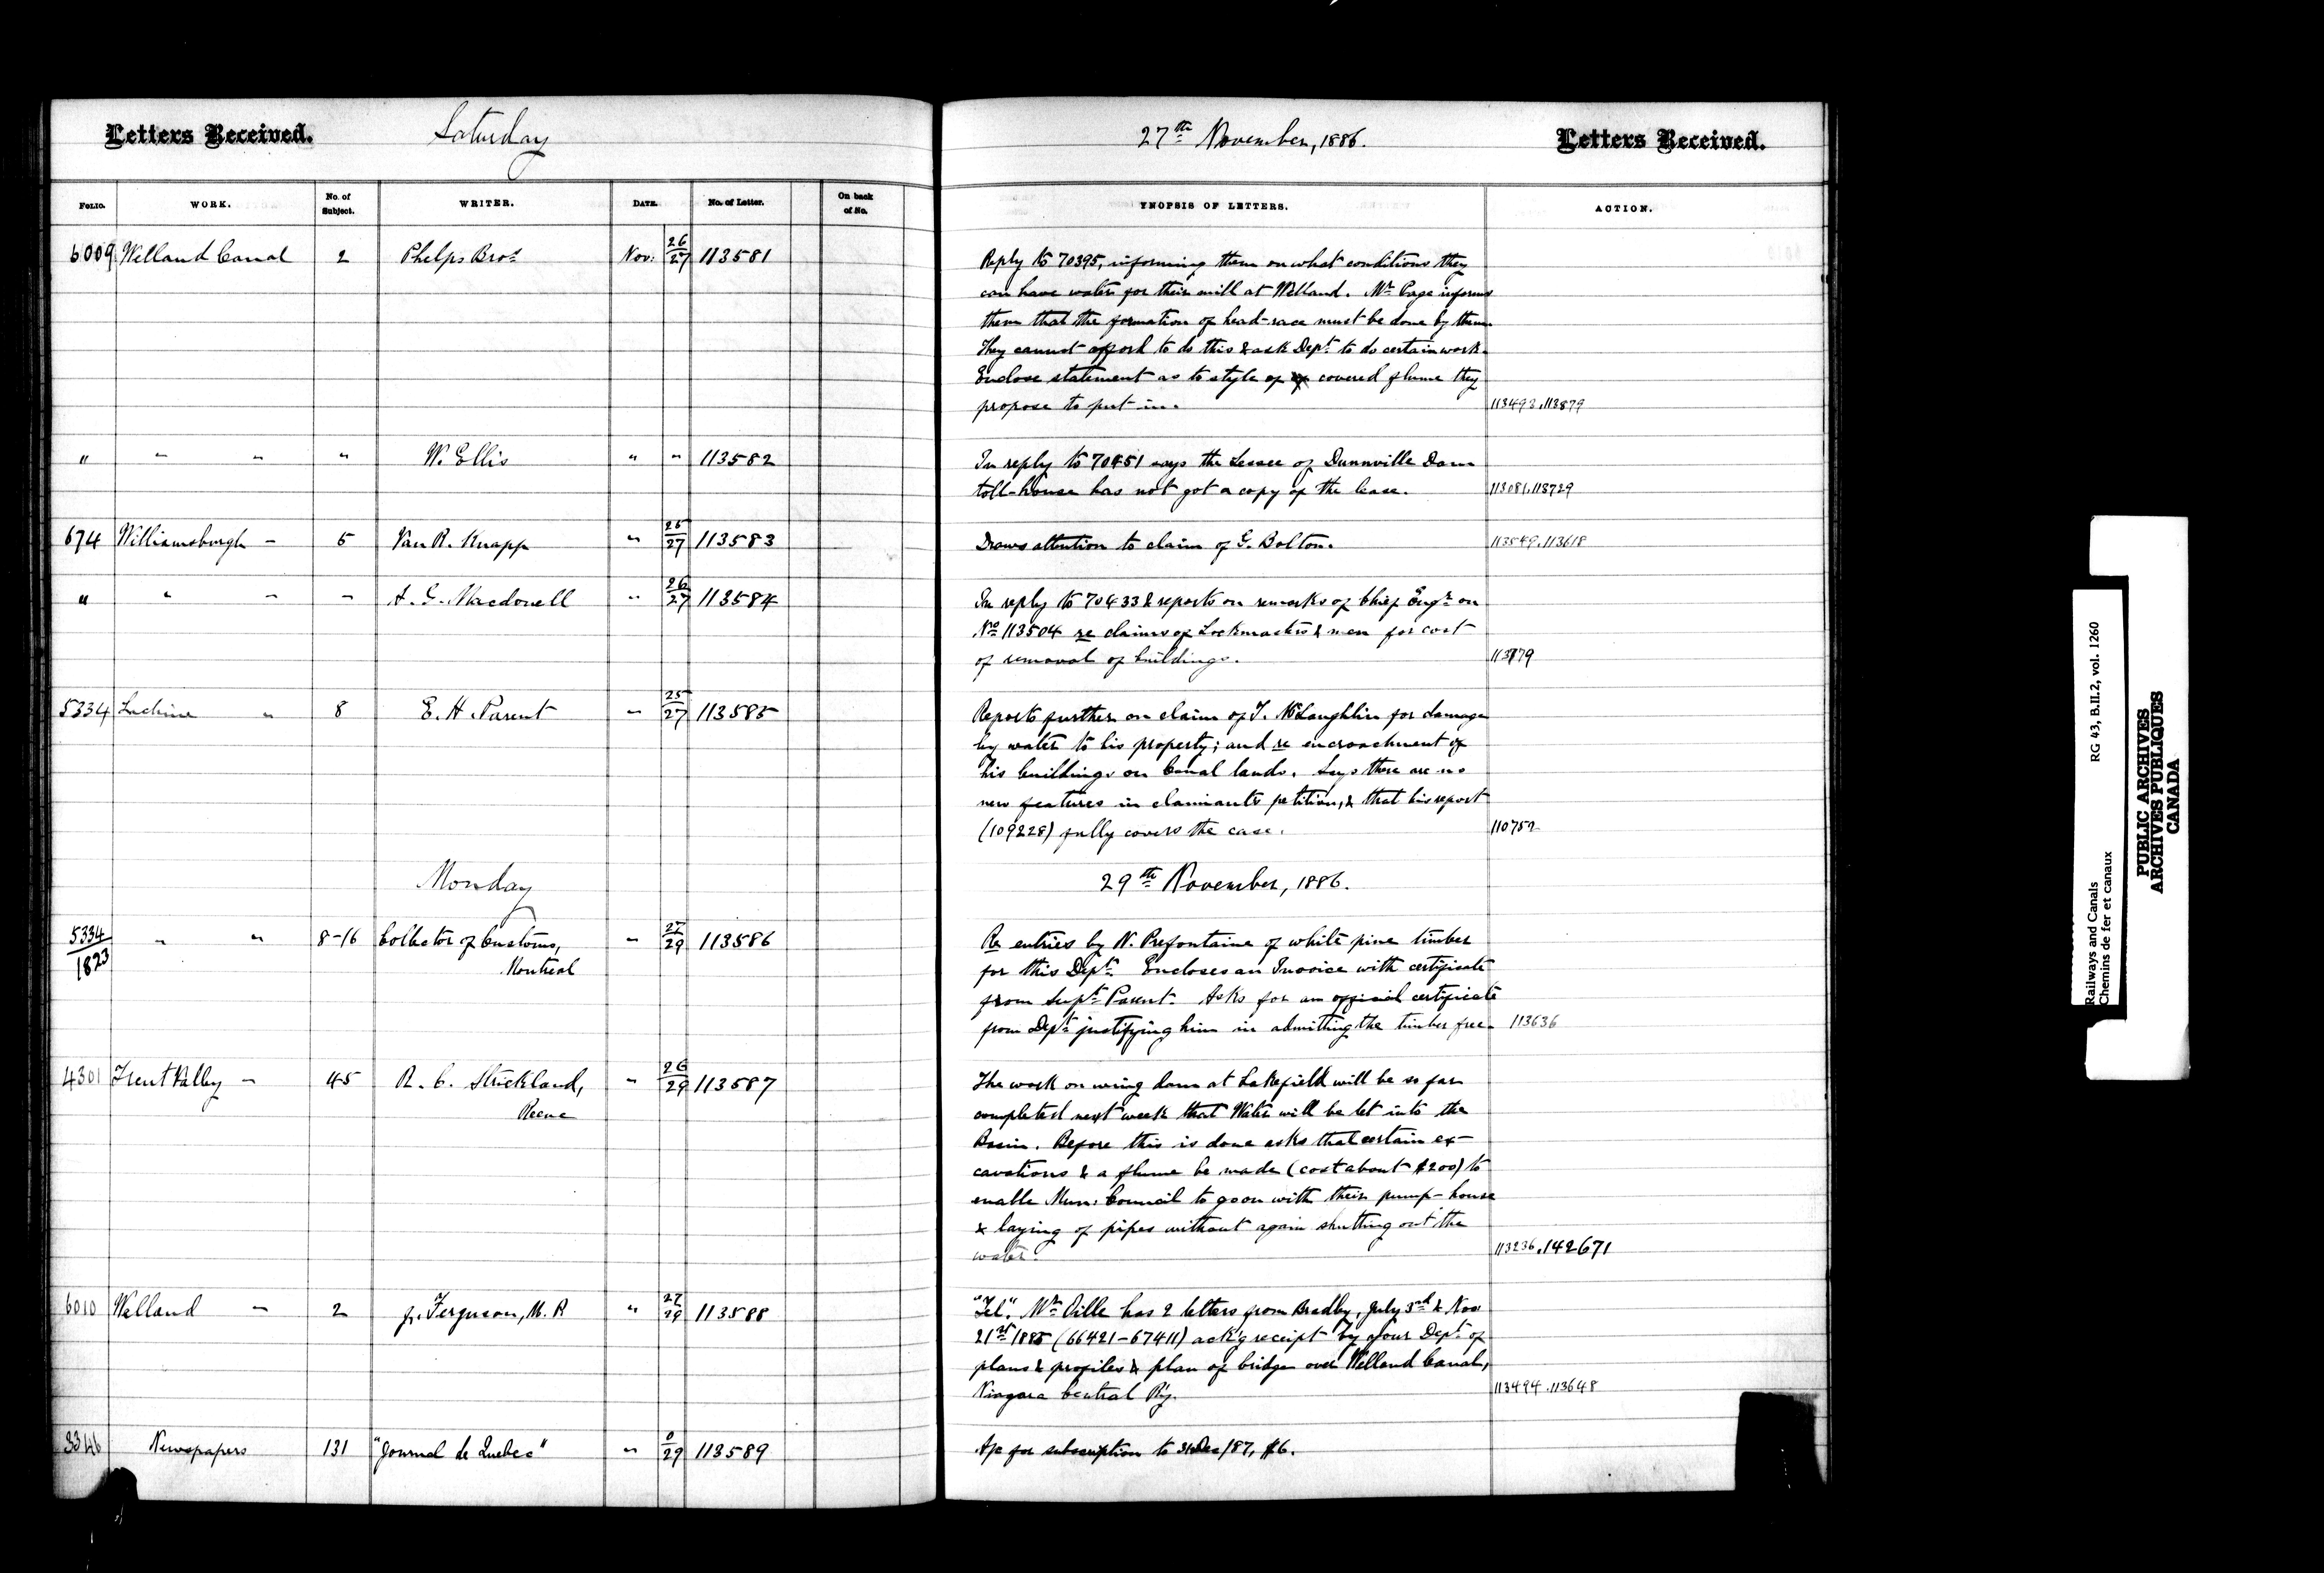 Letters Received. Saturday 27th November, 1886. Letters Received.
FOLIO. WORK. No. of Subject. WRITER. DATE. No. of Letter. On back of No. YNOPSIS OF LETTERS. ACTION.
6009 Welland Canal 2 Phelps Bros Nov: 26/27 113581 Reply to 70395, informing them on what conditions they
can have water for their mill at Welland. Mr Page informs
them that the formation of head-race must be done by them
They cannot afford to do this & ask Dept. to do certain work.
Enclose statement as to style of covered flume they
propose to put in. 113493.113879
" " " " W. Ellis " " 113582 In reply to 70451 says the Lessee of Dunnville Dam
toll-house has not got a copy of the lease. 113081.113729
674 Williamsburgh " 5 Van R. Knapp " 25/27 113583 Draws attention to claim of G. Bolton. 113549.113618
" " " " A. G. Macdonell " 26/27 113584 In reply to 70433 & reports on remarks of Chief Engr on
No 113504 re claims of Lockmasters & men for cost
of removal of buildings. 113179
5334 Lachine " 8 E. H. Parent " 25/27 113585 Reports further on claim of T. McLaughlin for damage
by water to his property; and re encroachment of
his buildings on Canal lands. Says there are no
new features in claimants petition, & that his report
(109228) fully covers the case. 110752
Monday 29th November, 1886.
5334/1823 " " 8-16 Collector of Customs, " 27/29 113586 Re entries by N. Prefontaine of white pine timber
Montreal for this Dept. Encloses an Invoice with certificate
from Supt. Parent. Asks for an official certificate
from Dept. justifying him in admitting the timber free. 113636
4301 Trent Valley " 45 R. C. Strickland, " 26/29 113587 The work on wing dam at Lakefield will be so far
Reeve completed next week that Water will be let into the
Basin. Before this is done asks that certain ex-
cavations & a flume be made (cost about $200) to
enable Mun: Council to go on with their pump-house
& laying of pipes without again shutting out the
water. 113236.142671
6010 Welland " 2 J. Ferguson, M.P. " 27/29 113588 "Tel". Mr Oille has 2 letters from Bradley, July 3rd & Nov
21st 1885 (66421-67411) ack'g receipt by your Dept. of
plans & profiles & plan of bridge over Welland Canal,
Niagara Central Ry. 113494.113648
3346 Newspapers 131 "Journal de Quebec" " 0/29 113589 A/c for subscription to 31 Dec/87, $6.
Railways and Canals RG 43, B.II.2, vol. 1260
Chemins de fer et canaux
PUBLIC ARCHIVES
ARCHIVES PUBLIQUES
CANADA